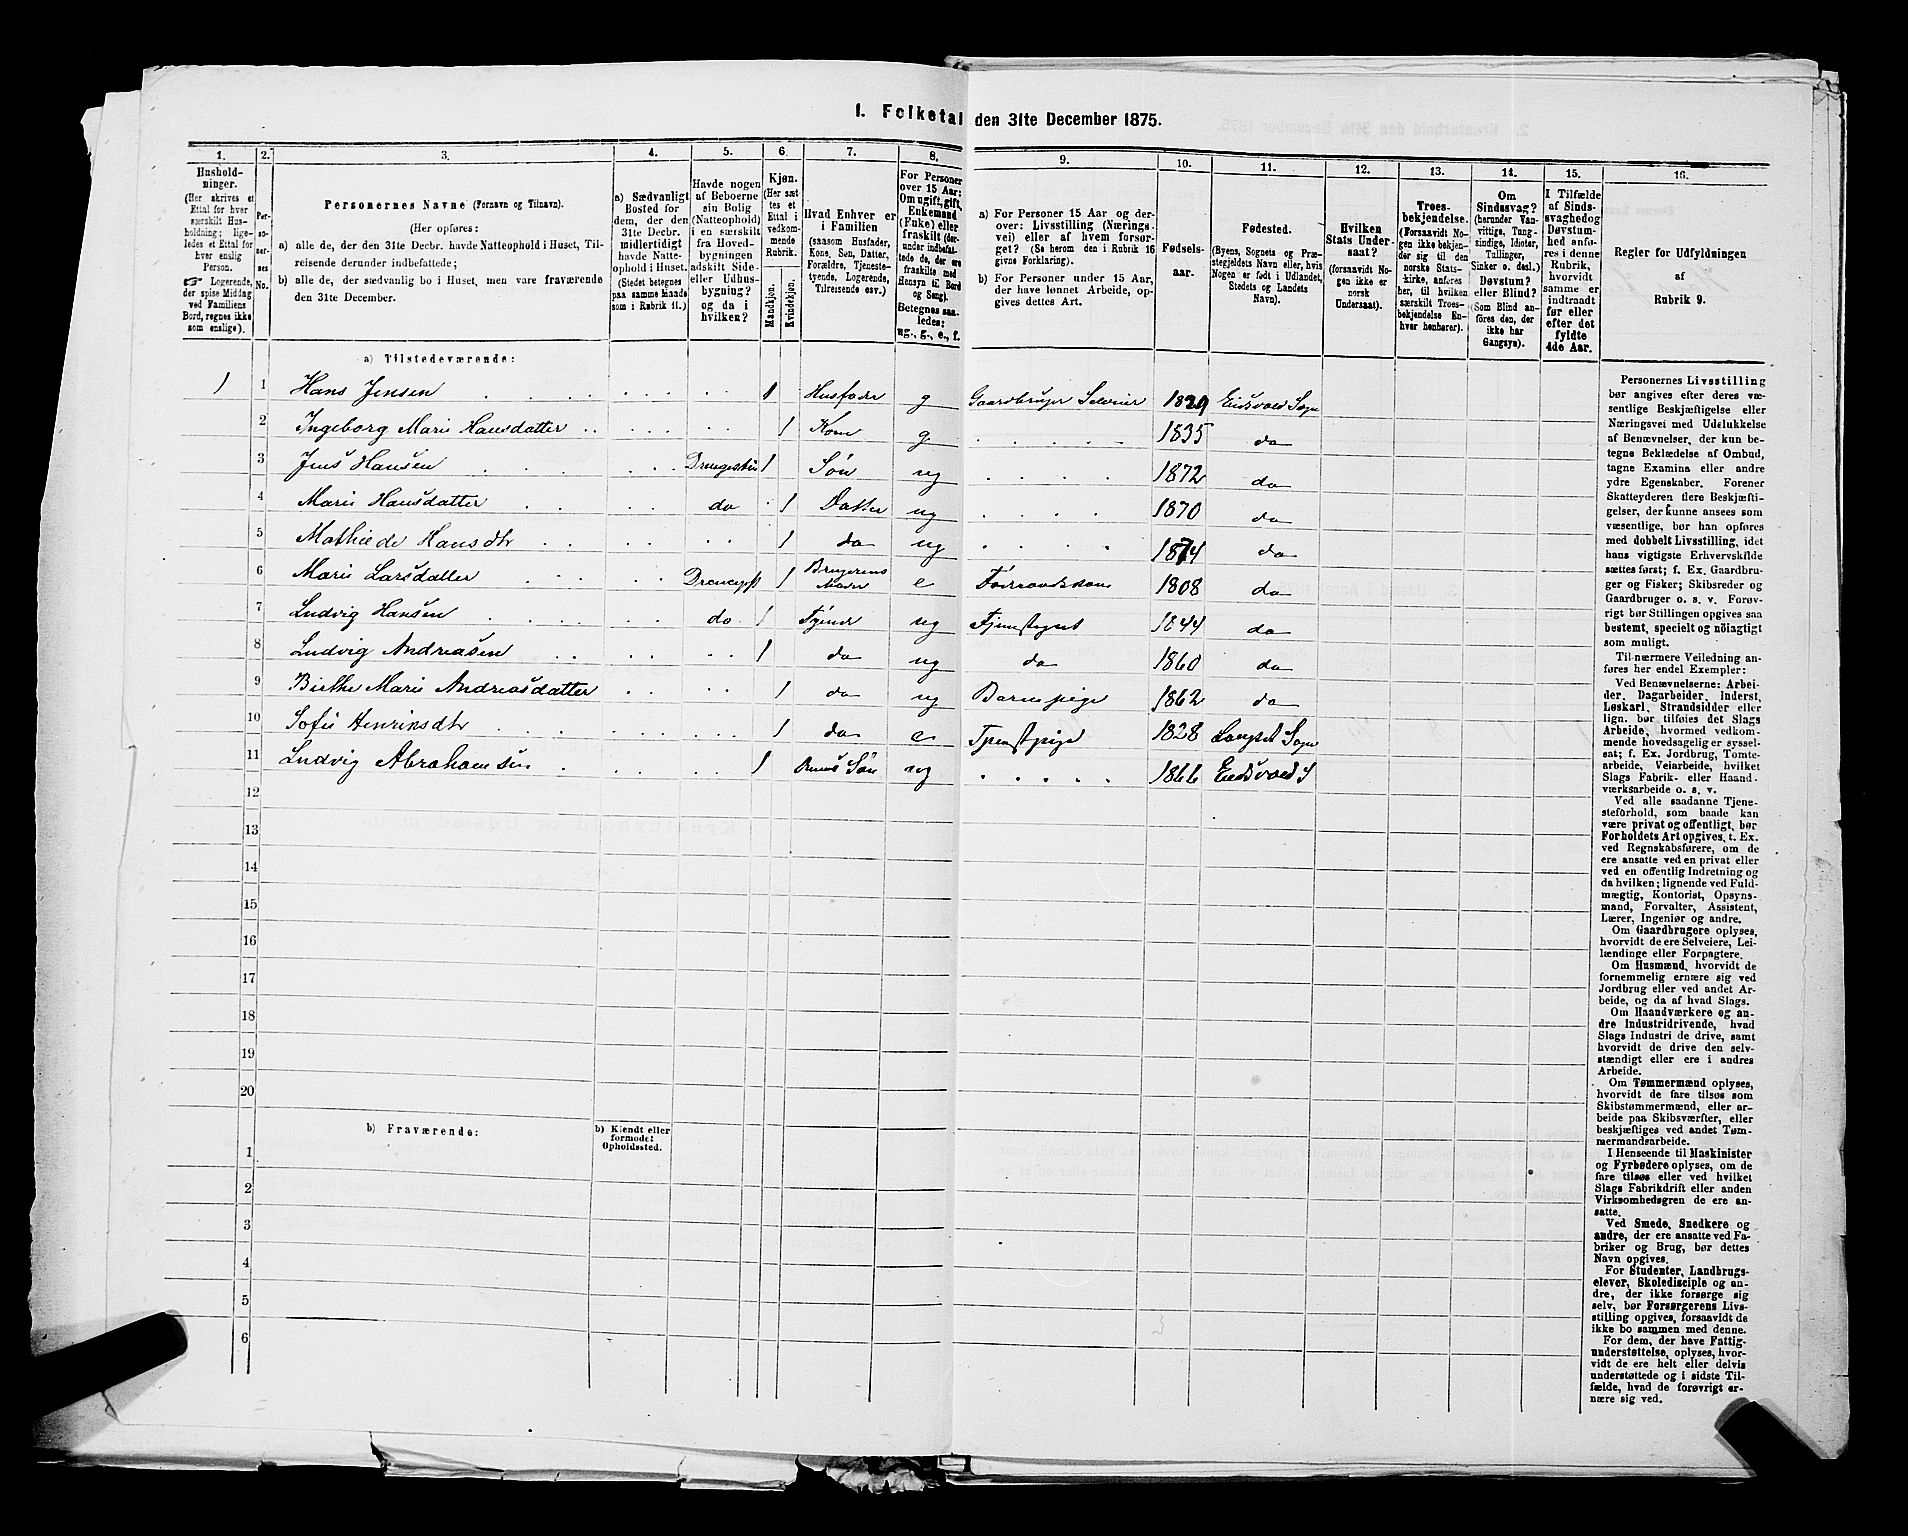 1. Folketal den 31te December 1875.
1. 2. 3. 4. 5. 6. 7. 8. 9. 10. 11. 12. 13. 14. 15. 16.
Hushold-
ninger.
(Her skrives et
Ettal for hver
særskilt Hus-
holdning; lige-
ledes et Ettal for
hver enslig
Person.
☞ Logerende,
der spise Middag
ved Familiens
Bord, regnes ikke
som enslige).
Per-
so-
ner-
nes
No.
Personernes Navne (Fornavn og Tilnavn).
(Her opføres:
a) alle de, der den 31te Decbr. havde Natteophold i Huset, Til-
reisende derunder indbefattede;
b) alle de, der sædvanlig bo i Huset, men vare fraværende
den 31te December.
a) Sædvanligt
Bosted for
dem, der den
31te Decbr.
midlertidigt
havde Natte-
ophold i Huset.
(Stedet betegnes
paa samme Maade
som i Rubrik 11.)
Havde nogen
af Beboerne
sin Bolig
(Natteophold)
i en særskilt
fra Hoved-
bygningen
adskilt Side-
eller Udhus-
bygning?
og da i
hvilken?
Kjøn.
(Her sæt-
tes et
Ettal i
vedkom-
mende
Rubrik.
Mandkjøn.
Kvindekjøn.
Hvad Enhver er
i Familien
(saasom Husfader,
Kone, Søn, Datter,
Forældre, Tjeneste-
tyende, Logerende,
Tilreisende osv.)
For Personer
over 15 Aar:
Om ugift, gift,
Enkemand
(Enke) eller
fraskilt (der-
under indbefat-
tede de, der ere
fraskilte med
Hensyn til Bord
og Seng).
Betegnes saa-
ledes:
ug., g., e., f.
a) For Personer 15 Aar og der-
over: Livsstilling (Nærings-
vei) eller af hvem forsør-
get? (Se herom den i Rubrik 16
givne Forklaring).
b) For Personer under 15 Aar,
der have lønnet Arbeide, op-
gives dettes Art.
Fødsels-
aar.
Fødested.
(Byens, Sognets og Præ-
stegjeldets Navn eller, hvis
Nogen er født i Udlandet,
Stedets og Landets
Navn).
Hvilken
Stats Under-
saat?
(forsaavidt No-
gen ikke er
norsk
Undersaat).
Troes-
bekjendelse.
(Forsaavidt No-
gen ikke bekjen-
der sig til den
norske Stats-
kirke, anføres
her, til hvilken
særskilt Troes-
bekjendelse En-
hver henhører).
Om
Sindssvag?
(herunder Van-
vittige, Tung-
sindige, Idioter,
Tullinger,
Sinker o. desl.)
Døvstum?
eller Blind?
(Som Blind an-
føres den, der
ikke har
Gangsyn).
I Tilfælde
af Sinds-
svaghed og
Døvstum-
hed anfø-
res i denne
Rubrik,
hvorvidt
samme er
indtraadt
før eller
efter det
fyldte
4de Aar.
Regler for Udfyldningen
af
Rubrik 9.
a) Tilstedeværende:
1 1 Hans Jensen 1 Husfader g Gaardbruger Selveier 1829 Eidsvold Sogn
2 Ingeborg Marie Hansdatter 1 Kone g 1835 do
3 Jens Hansen 1 Søn ug 1872 do
4 Marie Hansdatter do 1 Datter ug 1870 do
5 Mathilde Hansdtr 1 do ug 1874 do
6 Marie Larsdatter 1 Brugerens Moder e 1808 do
7 Ludvig Hansen do 1 Tyende ug 1844 do
8 Ludvig Andreasen 1 do ug do 1860 do
9 Birthe Marie Andreasdatter 1 do ug Barnepige 1862 do
10 Sofie Henriksdtr 1 do e Tjenstpige 1828 Langset Sogn
11 Ludvig Abrahamsen 1 Søn ug 1866 Eidsvold S
12
13
14
15
16
17
18
19
20
b) Fraværende:
b) Kjendt eller
formodet
Opholdssted.
1
2
3
4
5
6
Personernes Livsstilling
bør angives efter deres væ-
sentlige Beskjæftigelse eller
Næringsvei med Udelukkelse
af Benævnelser, der kun be-
tegne Beklædelse af Ombud,
tagne Examina eller andre
ydre Egenskaber. Forener
Skatteyderen flere Beskjæfti-
gelser, der kunne ansees som
væsentlige, bør han opføres
med dobbelt Livsstilling, idet
hans vigtigste Erhvervskilde
sættes først; f. Ex. Gaardbru-
ger og Fisker; Skibsreder og
Gaardbruger o. s. v. Forøv-
rigt bør Stillingen opgives saa
bestemt, specielt og nöiagtigt
som muligt.
Til nærmere Veiledning an-
føres her endel Exempler:
Ved Benævnelserne: Arbei-
der, Dagarbeider, Inderst,
Løskarl, Strandsidder eller
lign. bør tilføies det Slags
Arbeide, hvormed vedkom-
mende hovedsagelig er syssel-
sat; f. Ex. Jordbrug, Tomte-
arbeide, Veiarbeide, hvilket
Slags Fabrik- eller Haand-
værksarbeide o. s. v.
Ved alle saadanne Tjene-
steförhold, som baade kan
være privat og offentligt, bør
Forholdets Art opgives, t. Ex.
ved Regnskabsførere, om de
ere ansatte ved en privat eller
ved en offentlig Indretning og
da hvilken; lignende ved Fuld-
mægtig, Kontorist, Opsyns-
mand, Forvalter, Assistent,
Lærer, Ingeniør og andre.
Om Gaardbrugere oplyses,
hvorvidt de ere Selveiere, Lei-
lændinge eller Forpagtere.
Om Husmænd, hvorvidt de
fornemmelig ernære sig ved
Jordbrug eller ved andet Ar-
beide, og da af hvad Slags.
Om Haandværkere og an-
dre Industridrivende, hvad
Slags Industri de drive, samt
hvorvidt de drive den selv-
stændigt eller ere i andres
Arbeide.
Om Tømmermænd oplyses,
hvorvidt de fare tilsøs som
Skibstømmermænd, eller ar-
beide paa Skibsværfter, eller
beskjæftiges ved andet Tøm-
mermandsarbeide.
I Henseende til Maskinister
og Fyrbødere oplyses, om de
fare tilsøs eller ved hvilket
Slags Fabrikdrift eller anden
Virksomhedsgren de ere an-
satte.
Ved Smede, Snedkere og
andre, der ere ansatte ved Fa-
briker og Brug, bør dettes
Navn opgives.
For Studenter, Landbrugs-
elever, Skoledisciple og an-
dre, der ikke forsørge sig
selv, bør Forsørgerens Livs-
stilling opgives, forsaavidt de
ikke bo sammen med denne.
For dem, der have Fattig-
understøttelse, oplyses, hvor-
vidt de ere helt eller delvis
understøttede og i sidste Til-
fælde, hvad de forøvrigt er-
nære sig ved.